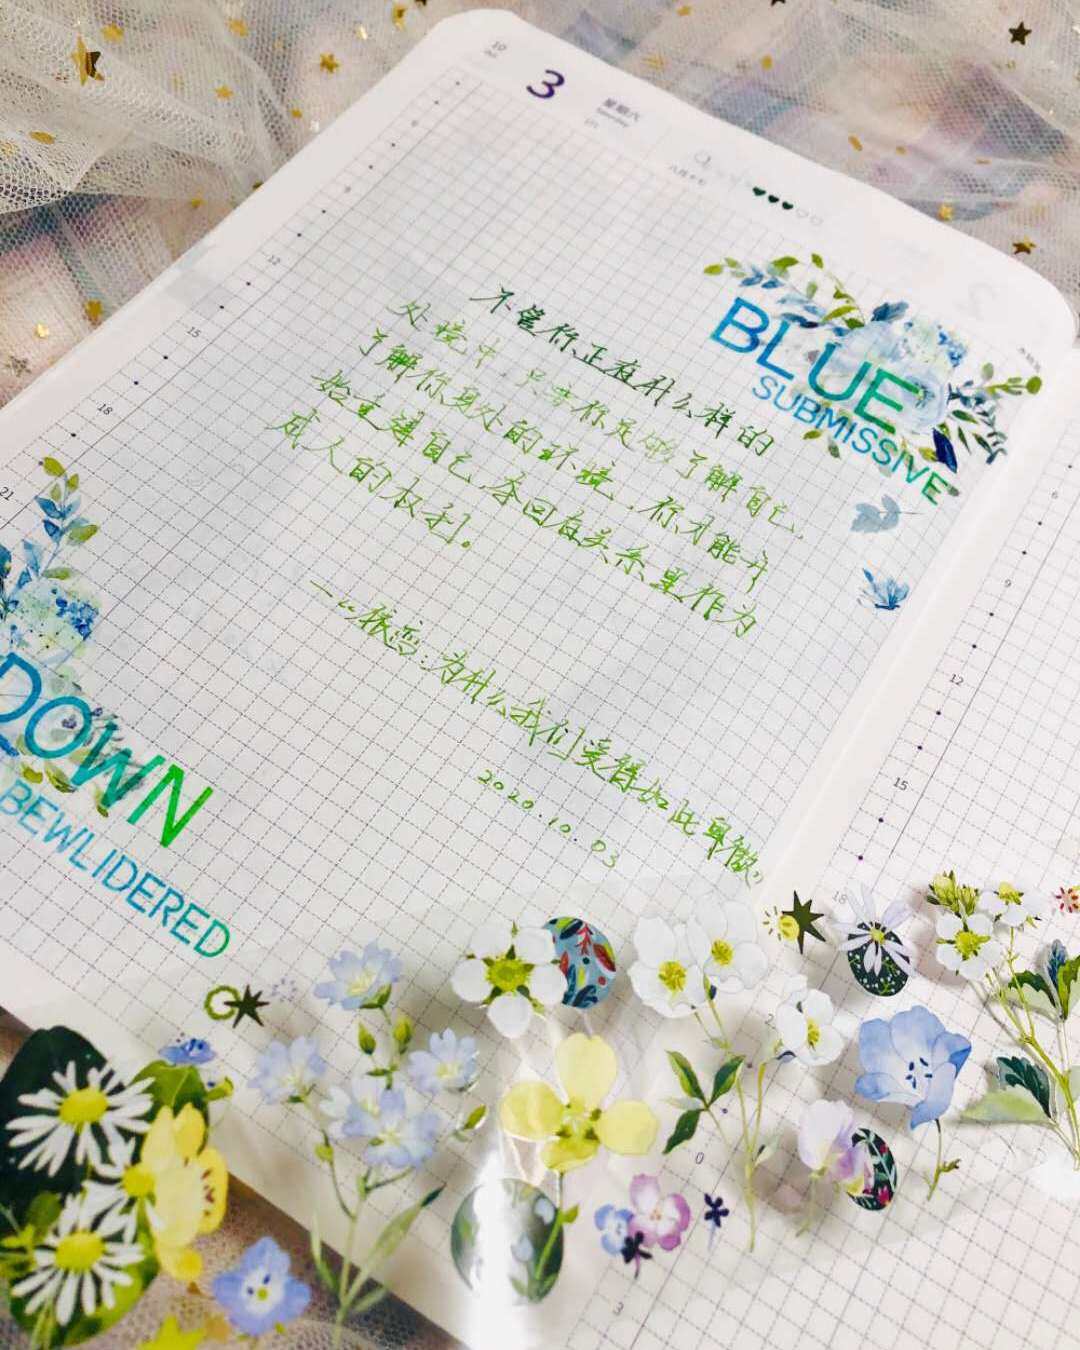 10
3
星期六
Saturday
BLUE
SUBMISSIVE
不管你正在什么样的
处境中,只要你足够了解自己,
了解你身处的环境,你才能开
始支薄自己,夺回在关系里作为
成人的权利。
振雪:为什么我们爱得如此卑微》
2020.10.03
DOWN
BEWLIDERED
12
15
18
21
6
9
12
15
18
0
3